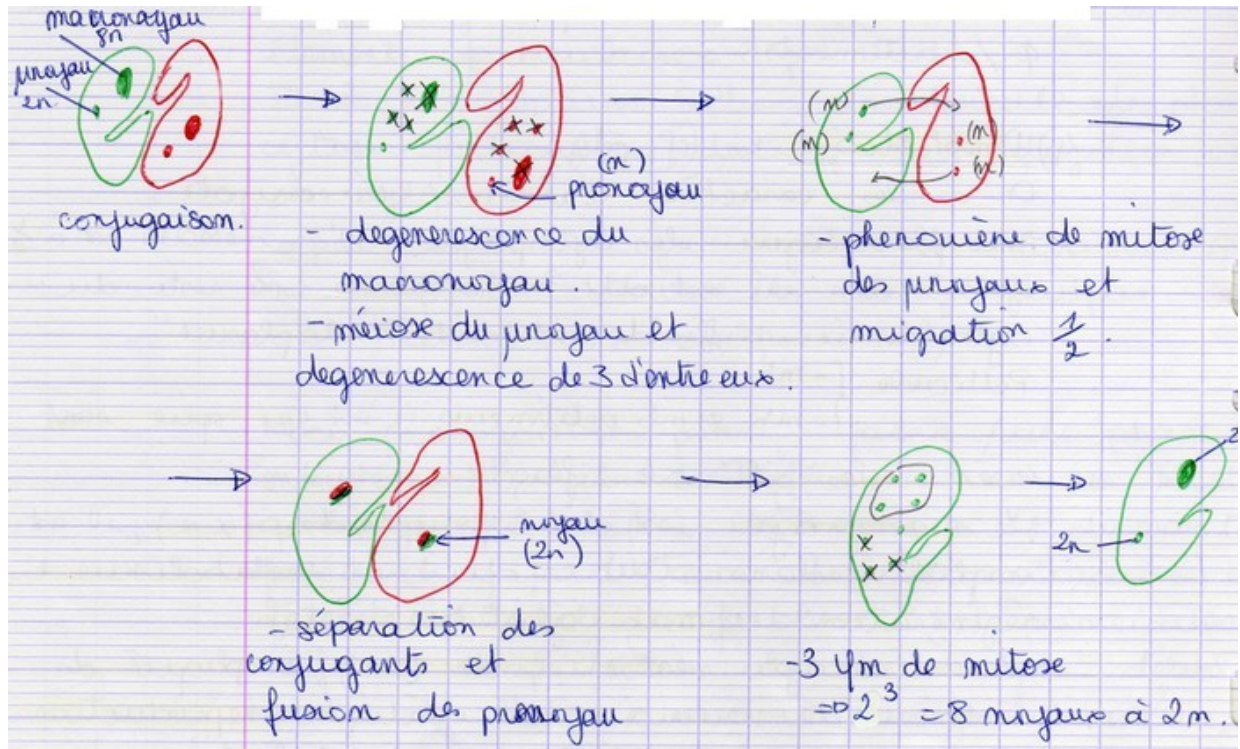 macronoyau
8n
µnoyau
2n
conjugaison.
(n)
pronoyau
- degenerescence du
macronoyau.
- méiose du µnoyau et
degenerescence de 3 d'entre eux.
(n)
(n)
(n)
(n)
- phenomène de mitose
des µnoyaux et
migration 1/2.
noyau
(2n)
- séparation des
conjugants et
fusion des pronoyau
2n
2
-3 ɥm de mitose
=> 2³ = 8 noyaux à 2n.